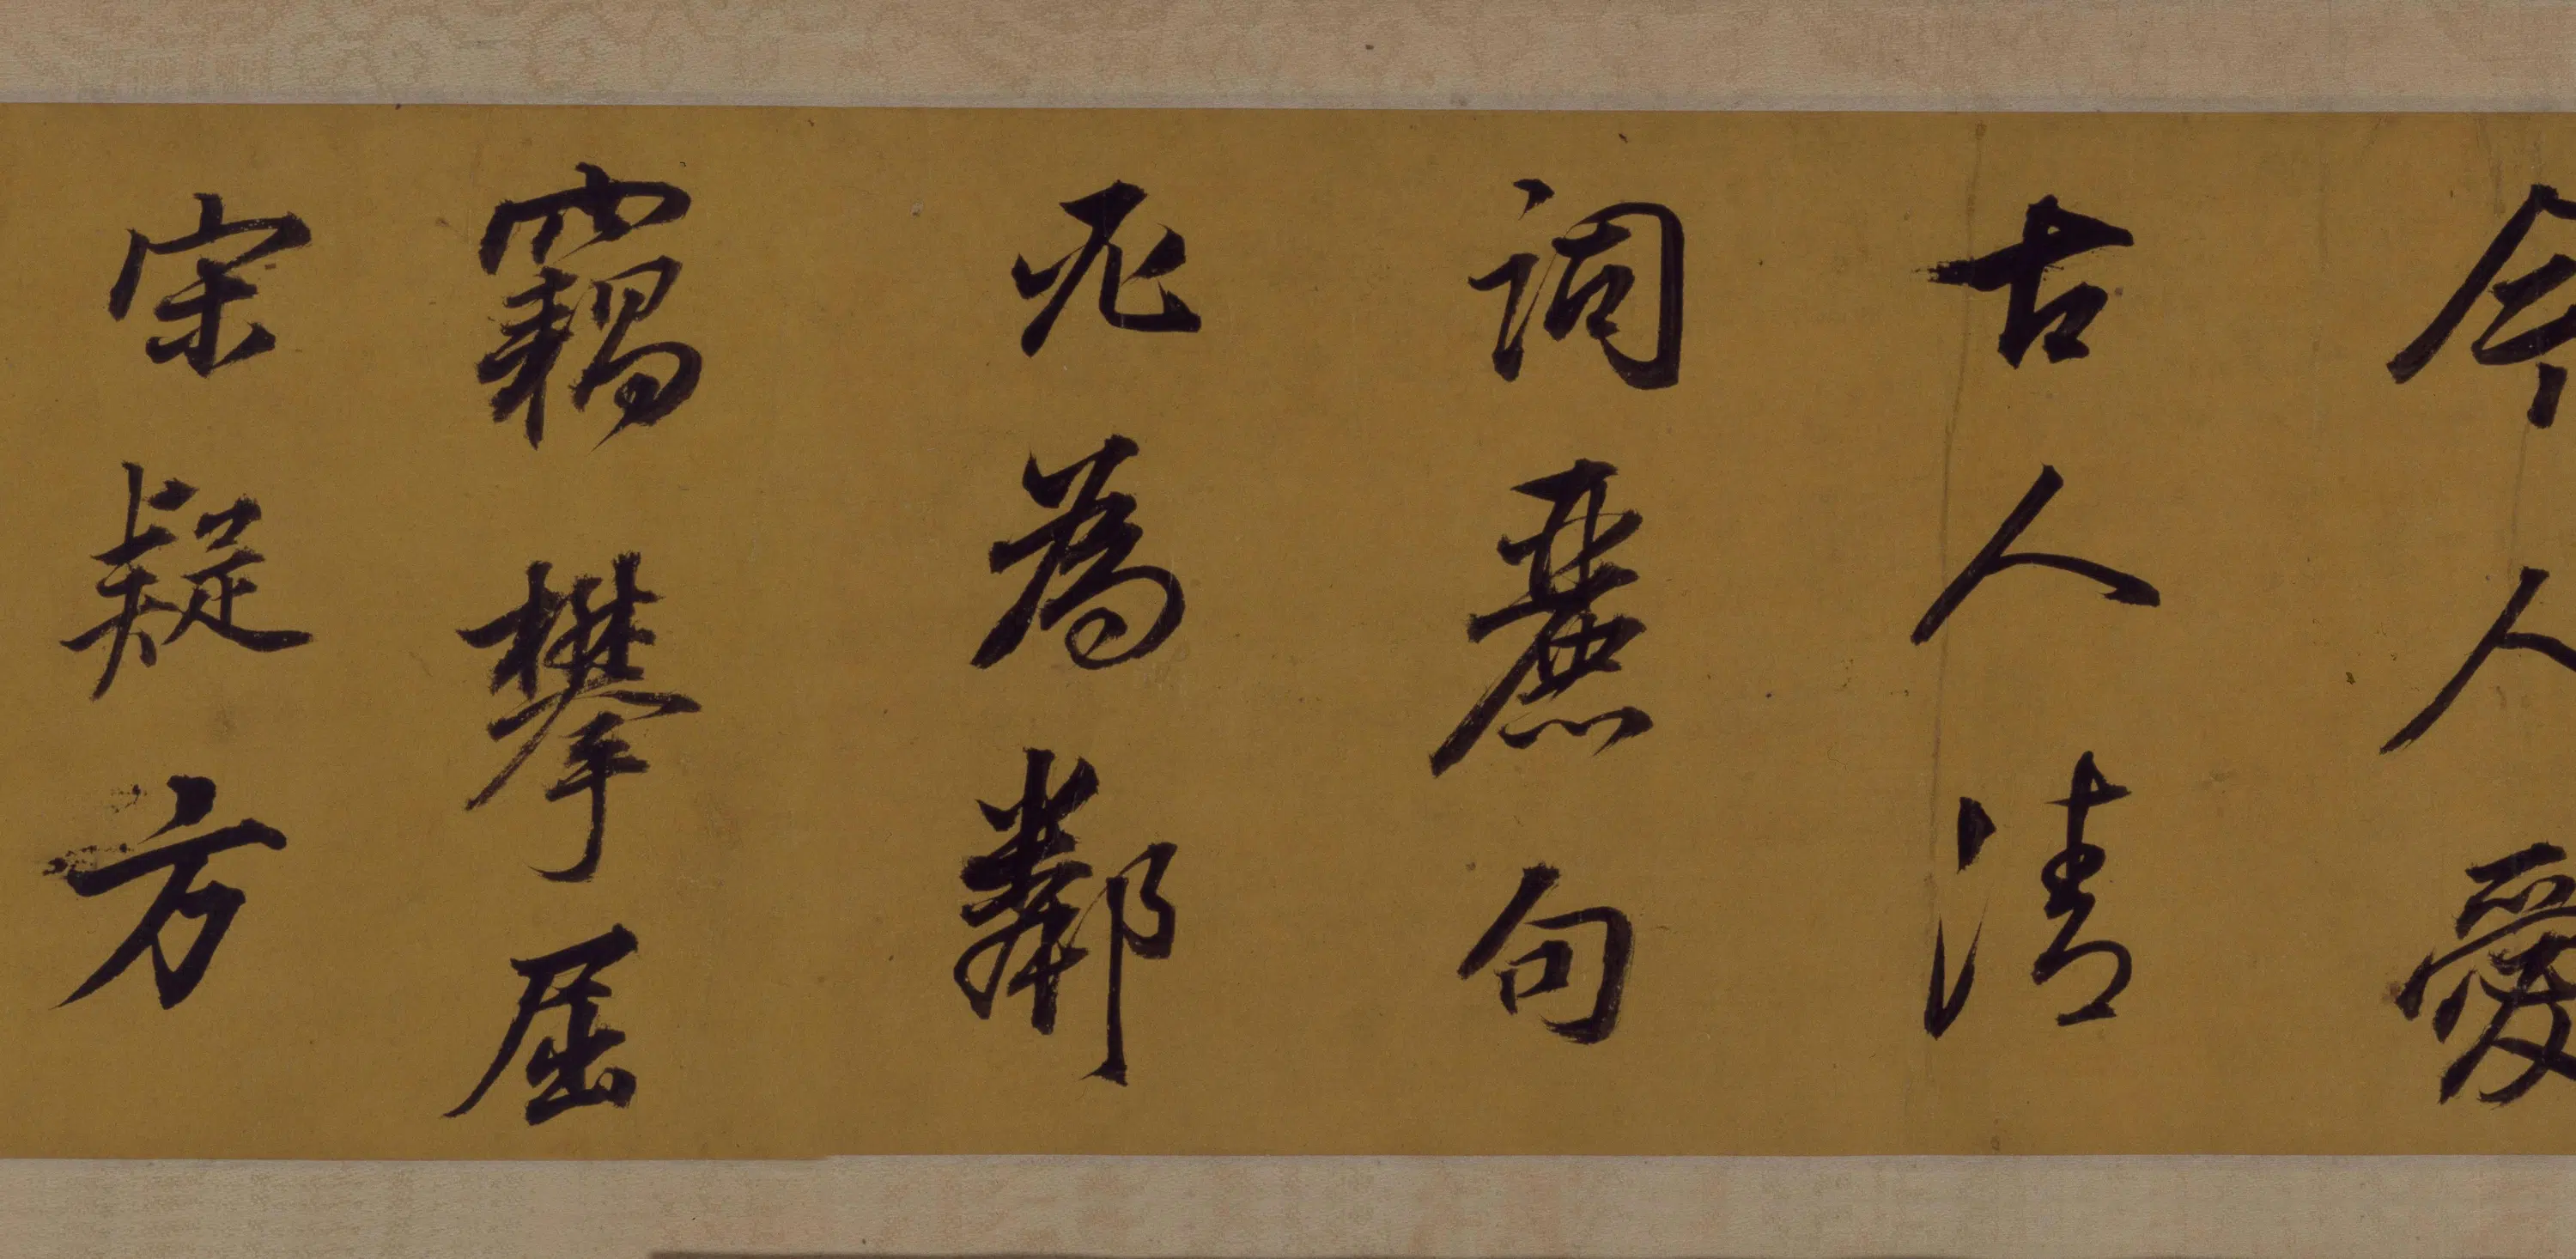 今人愛
古人清
詞麗句
必為鄰
竊攀屈
宋疑方